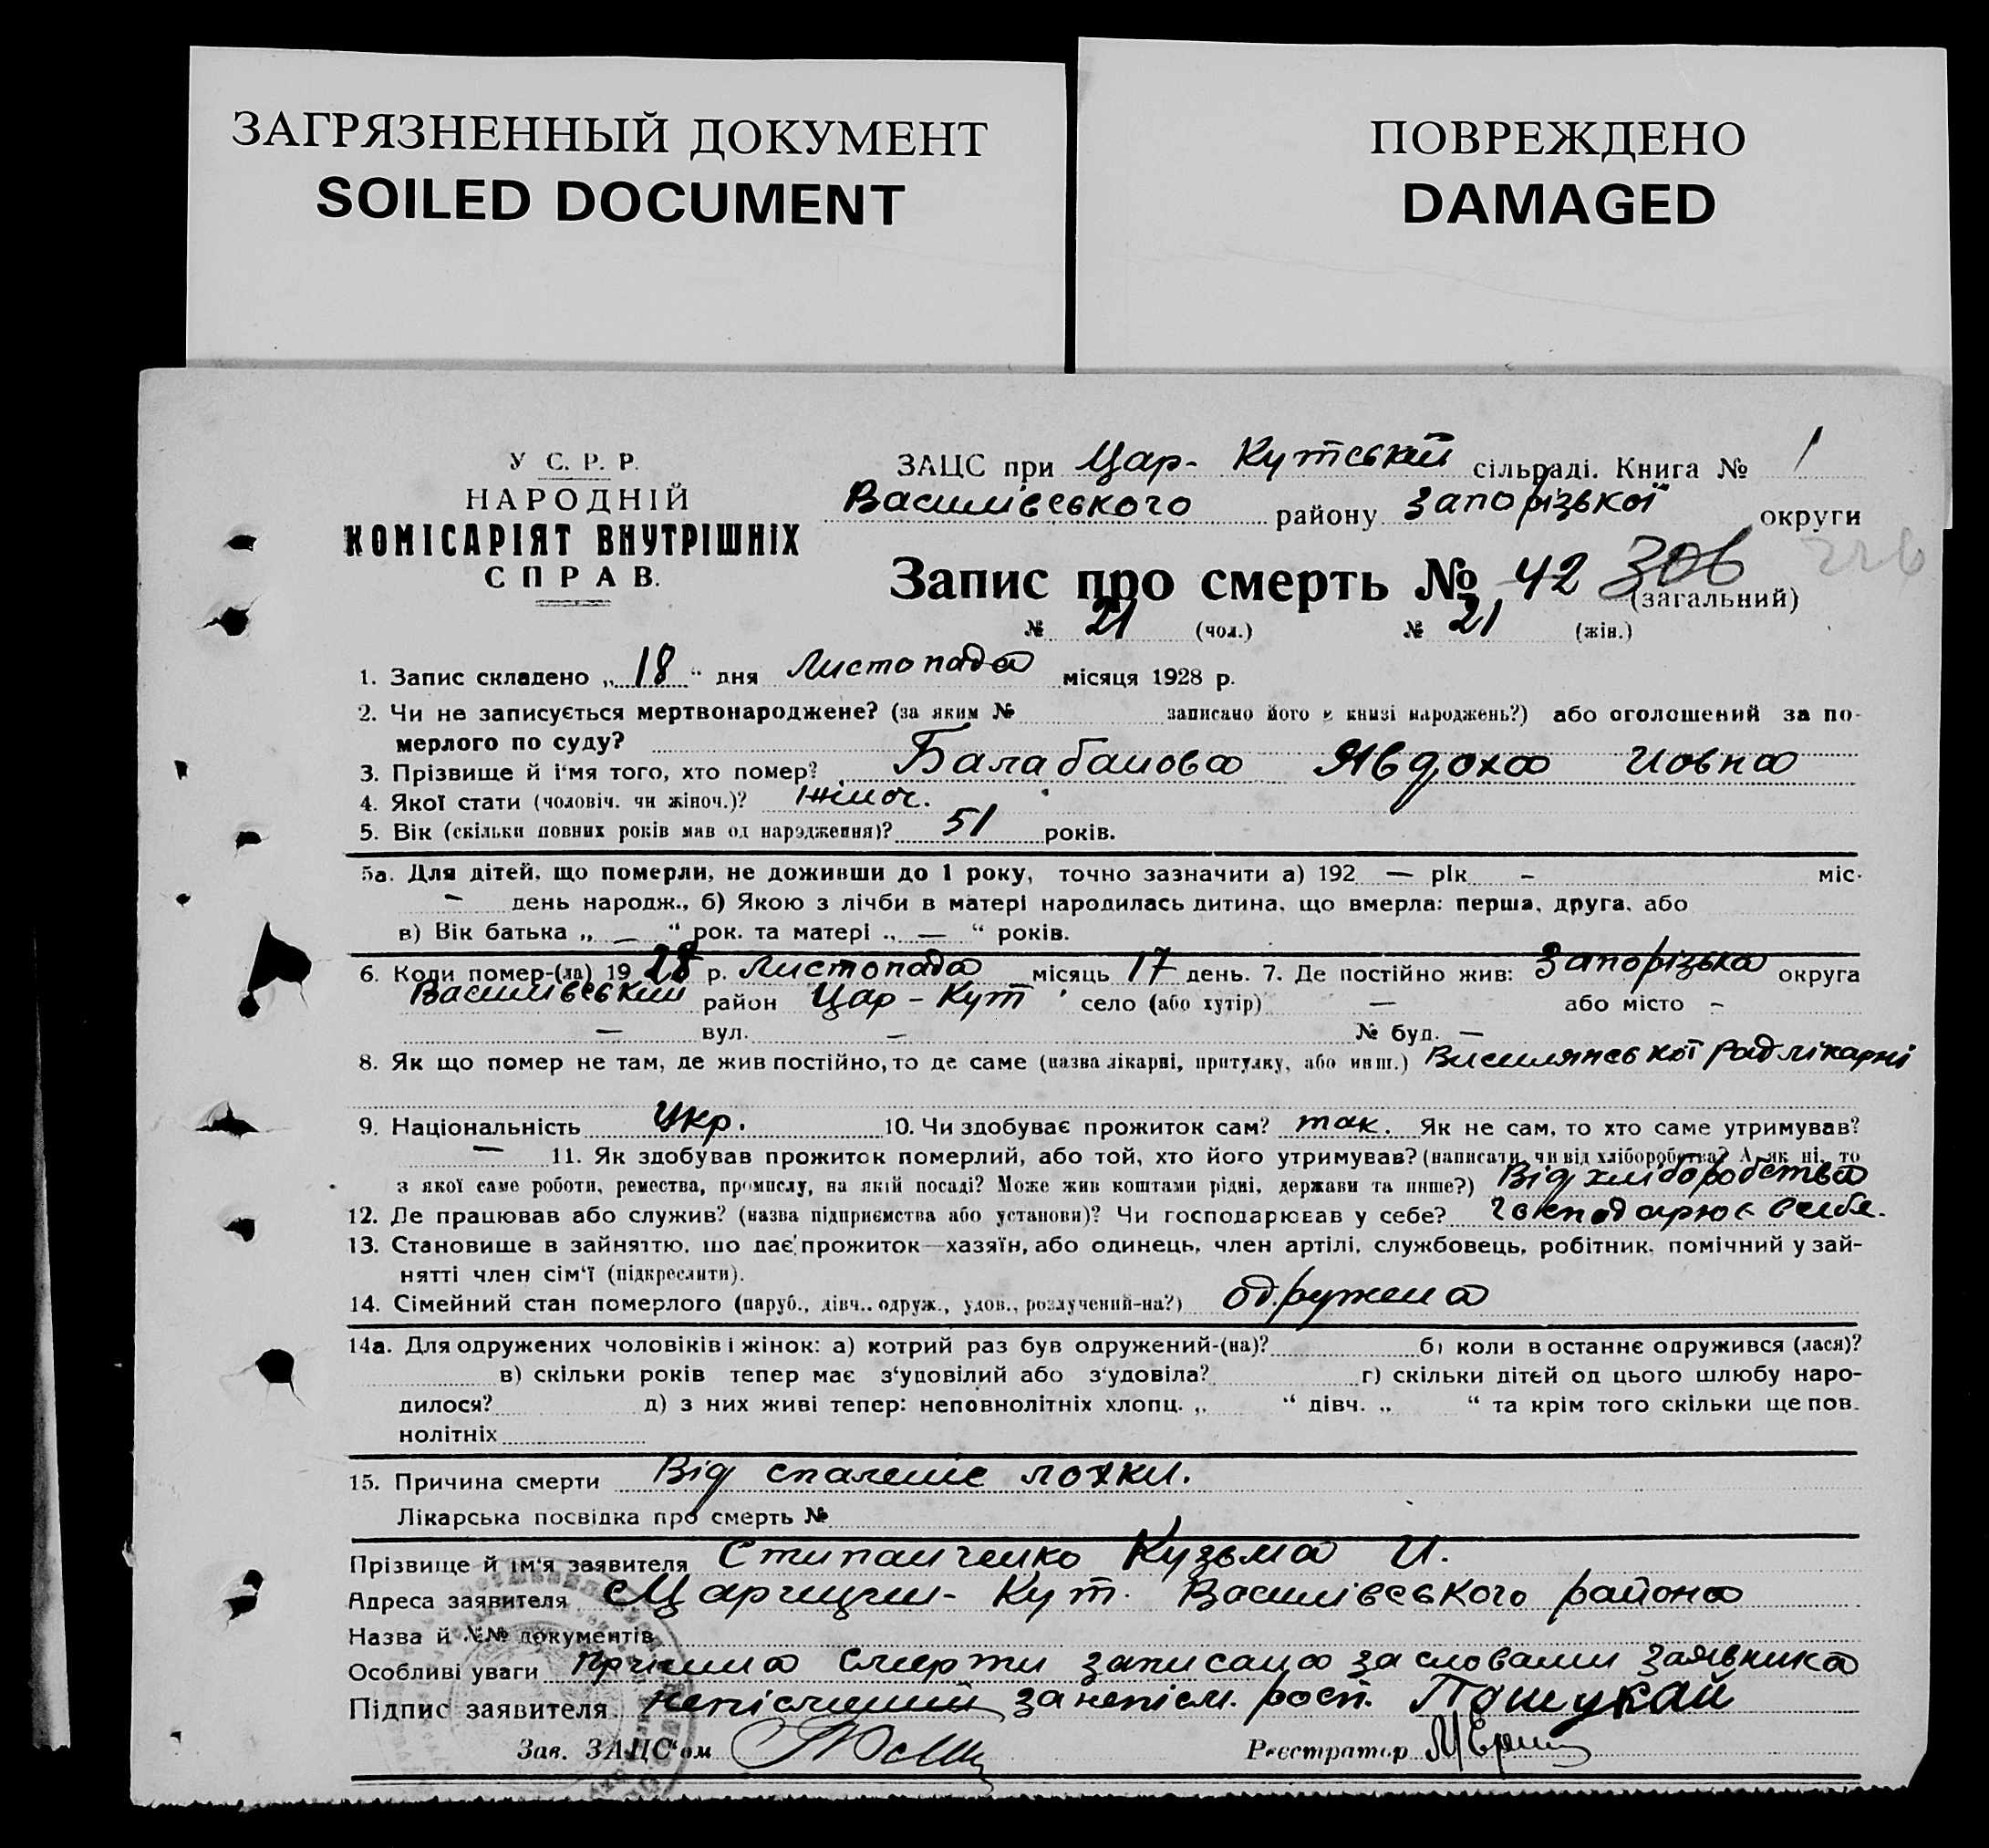 ЗАГРЯЗНЕННЫЙ ДОКУМЕНТ
SOILED DOCUMENT
ПОВРЕЖДЕНО
DAMAGED
У С. Р. Р.
НАРОДНІЙ
КОМІСАРІЯТ ВНУТРІШНІХ
СПРАВ.
ЗАЦС при Цар- Кутській сільраді. Книга № 1
Василівського району Запорізької округи
Запис про смерть № 42 306 226
(загальний)
№ 21 (чол.) № 21 (жін.)
1. Запис складено „18" дня Листопада місяця 1928 р.
2. Чи не записується мертвонароджене? (за яким № записано його в книзі народжень?) або оголошений за по-
мерлого по суду?
3. Прізвище й і'мя того, хто помер? Балабанова Явдоха Иовна
4. Якої стати (чоловіч. чи жіноч.)? жіноч.
5. Вік (скільки повних років мав од народження)? 51 років.
5а. Для дітей, що померли, не доживши до 1 року, точно зазначити а) 192 — рік – міс.
– день народж., б) Якою з лічби в матері народилась дитина, що вмерла: перша, друга, або
в) Вік батька „ — " рок. та матері „ — " років.
6. Коли помер-(ла) 19 28 р. Листопада місяць 17 день. 7. Де постійно жив: Запорізька округа
Василівський район Цар - Кут село (або хутір) — або місто –
— вул. — № буд. —
8. Як що помер не там, де жив постійно, то де саме (назва лікарні, притулку, або инш.) радлікарні
9. Національність Укр. 10. Чи здобуває прожиток сам? так. Як не сам, то хто саме утримував?
— 11. Як здобував прожиток померлий, або той, хто його утримував? (написати, чи від хліборобства? А як ні, то
з якої саме роботи, ремества, промислу, на якій посаді? Може жив коштами рідні, держави та инше?) Від хліборобства
12. Де працював або служив? (назва підприємства або установи)? Чи господарював у себе? Господарює в себе.
13. Становище в зайняттю, що дає прожиток—хазяїн, або одинець, член артілі, службовець, робітник, помічний у зай-
нятті член сім'ї (підкреслити).
14. Сімейний стан померлого (паруб., дівч., одруж., удов., розлучений-на?) одружена
14а. Для одружених чоловіків і жінок: а) котрий раз був одружений-(на)? б) коли в останнє одружився (лася)?
в) скільки років тепер має з'удовілий або з'удовіла? г) скільки дітей од цього шлюбу наро-
дилося? д) з них живі тепер: неповнолітніх хлопц. „ " дівч. „ " та крім того скільки ще пов.
нолітніх
15. Причина смерти Від спаленіє лохки.
Лікарська посвідка про смерть №
Прізвище й ім'я заявителя Стипанченко Кузьма И.
Адреса заявителя с Царицин- Кут. Василівського района
Назва й №№ документів
Особливі уваги причина смерти записана за словами заявника
Підпис заявителя непісьмений за непісм. росп. Пошукай
Зав. ЗАЦС'ом
Реєстратор